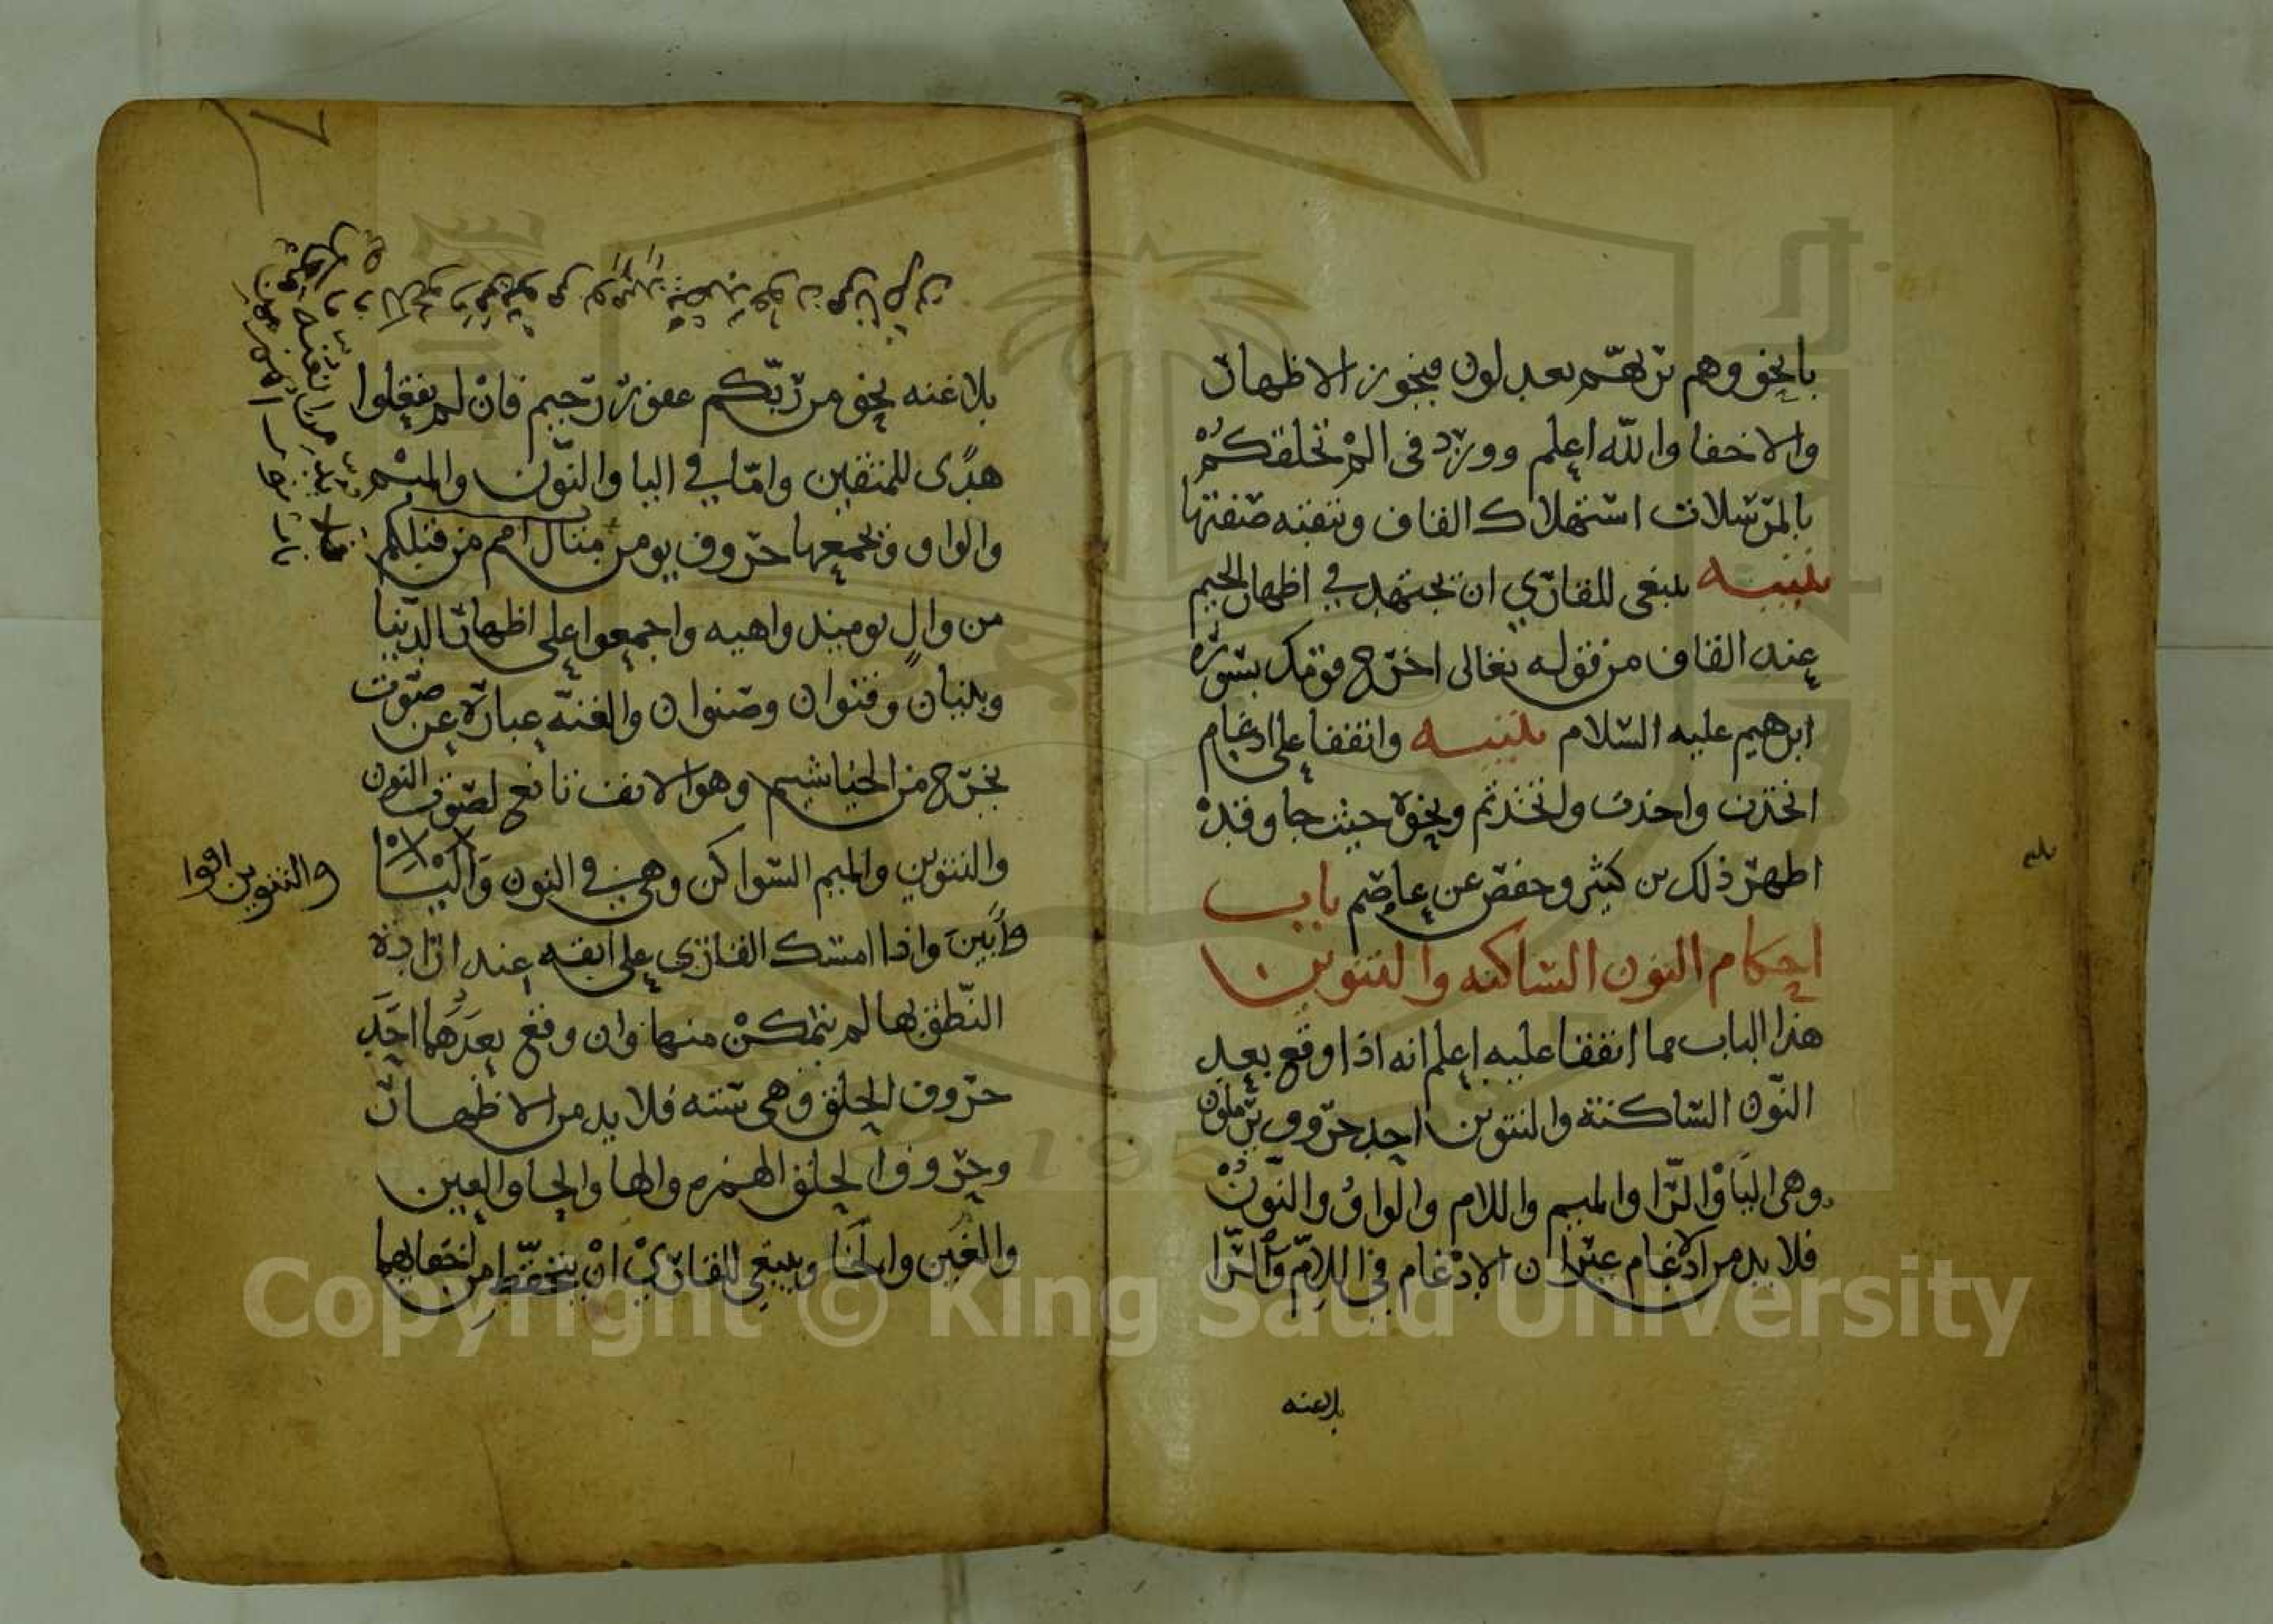 بالخق وهم بربهم يعدلون فيجوز الاظهار
والاخفا والله اعلم وورد فى الم نخلقكم
بالمرسلات استهلاك القاف وتبقيه صفتها
تنبيه ينبغى للقاري ان يجتهد في اظهار الجيم
عند القاف من قوله تعالى اخرج قومك بسورة
ابرهيم عليه السلام تنبيه واتفقا على ادغام
اتخذت واخذت واتخذتم ونحوه حيث جا وقد
اظهر ذلك بن كثير وحفص عن عاصم باب
احكام النون الساكنه والتنوين
هذا الباب مما اتفقا عليه اعلم انه اذا وقع بعد
النون الساكنة والتنوين احد حروف يرملون
وهى اليا والرا والميم واللام والواو والنون
فلا بد من الادغام غير ان الادغام فى اللام والرا
بلاغنه
بلاغنه نحو من ربكم غفور رحيم فان لم تفعلوا
هدى للمتقين واما في اليا والنون والميم
والواو ويجمعها حروف يومن منال امم من قبلكم
من وال يوميذ واهيه واجمعوا على اظهار الدنيا
وبنيان وقنوان وصنوان والغنه عبارة عن صوت
يخرج من الخياشيم وهو الانف تابع لصوت النون
والتنوين والميم السواكن وهي في النون
والتنوين اقوا
وابين واذا امسك القاري على انفه عند ارادة
النطق بها لم يتمكن منها وان وقع بعدهما احد
حروف الحلق وهى ستته فلا بد من الاظهار
وحروف الحلق الهمزه والها والحا والعين
والغين والخا وينبغى للقاري ان يتحفظ من اخفايهما
Copyright © King Saud University